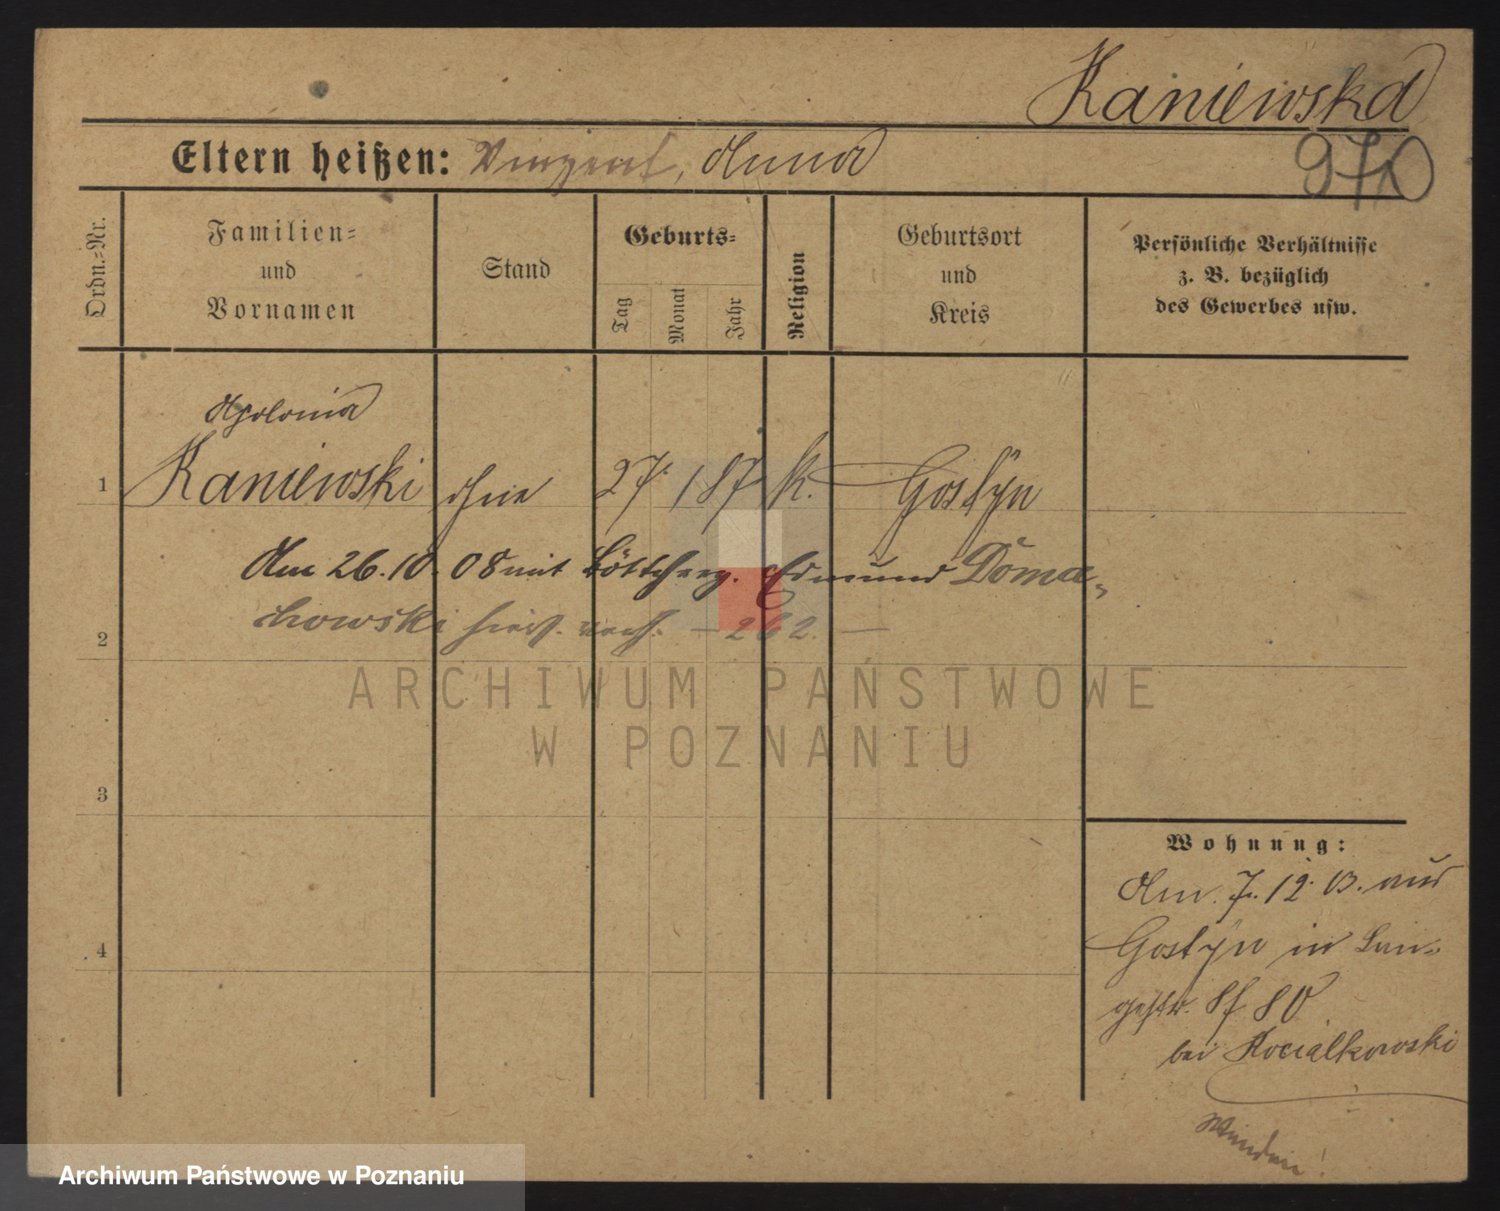 Kaniewska
Eltern heißen: Vinzent, Anna
970
Ordn.=Nr.
Familien=
und
Vornamen
Stand
Geburts=
Tag
Monat
Jahr
Religion
Geburtsort
und
Kreis
Persönliche Verhältnisse
z. B. bezüglich
des Gewerbes usw.
Apolonia
1 Kaniewski ohne 27. 1 87 K. Gostyn
Am 26.10.08 mit Böttcherg. Edmund Doma-
2 chowski hies. verh. — 262. —
3
4
Wohnung:
Am 7.12.03. aus
Gostyn in Lan-
gestr. 80
bei Kocialkowski
ARCHIWUM PAŃSTWOWE
W POZNANIU
Archiwum Państwowe w Poznaniu